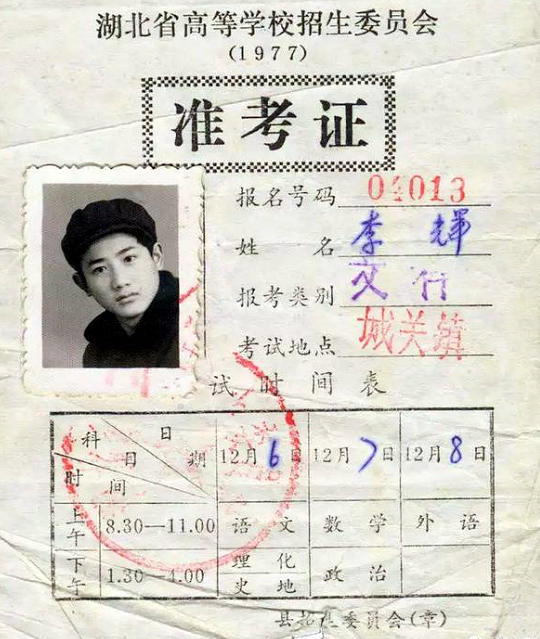 湖北省高等学校招生委员会
(1977)
准考证
报名号码 04013
姓 名 李 辉
报考类别 文 科
考试地点 城关镇
试时间表
科目 日期 时间 12月6日 12月7日 12月8日
上午 8.30—11.00 语文 数学 外语
下午 1.30—4.00 理化 史地 政治
县招生委员会(章)